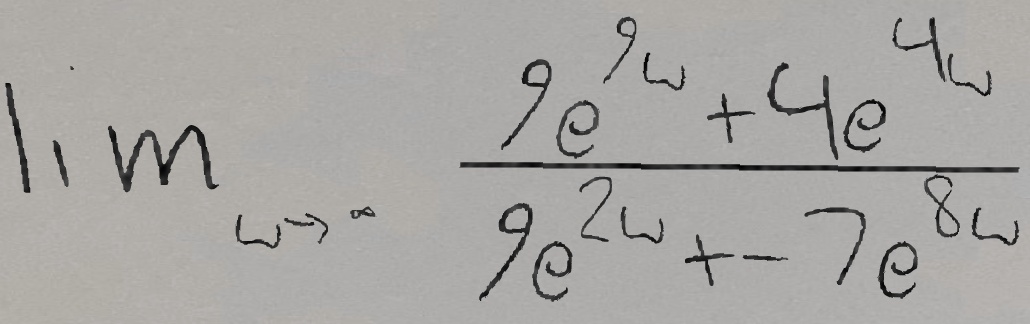 \lim_{w \to \infty} \frac{9e^{9w} + 4e^{4w}}{9e^{2w} + -7e^{8w}}